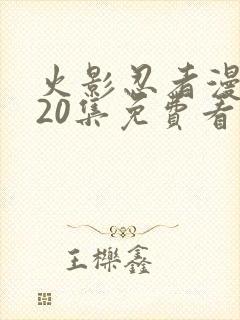 火影忍者漫
20集免费看
王檪鑫